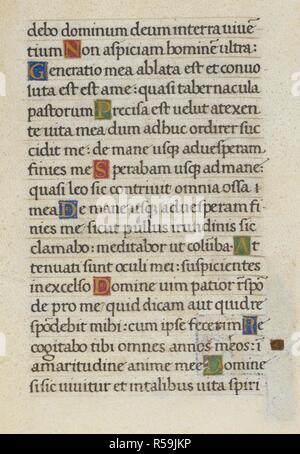 debo dominum deum in terra viuē
tium Non aspiciam hominē ultra:
Generatio mea ablata est et conuo
luta est est ame: quasi tabernacula
pastorum Precisa est uelut atexen
te uita mea dum adhuc ordirer suc
cidit me: de mane usq; aduesperam
finies me Sperabam usq; admane:
quasi leo sic contriuit omnia ossa
mea De mane usq; aduesperam fi
nies me sicut pullus irundinis sic
clamabo: meditabor ut colūba. At
tenuati sunt oculi mei: suspicientes
inexcelso Domine uim patior rn̄spō
de pro me quid dicam aut quid re
spōdebit mihi: cum ipse fecerim Re
cogitabo tibi omnes annos meos: ī
amaritudine anime mee Domine
si sic uiuitur et in talibus uita spiri
alamy
R59JKP
www.alamy.com